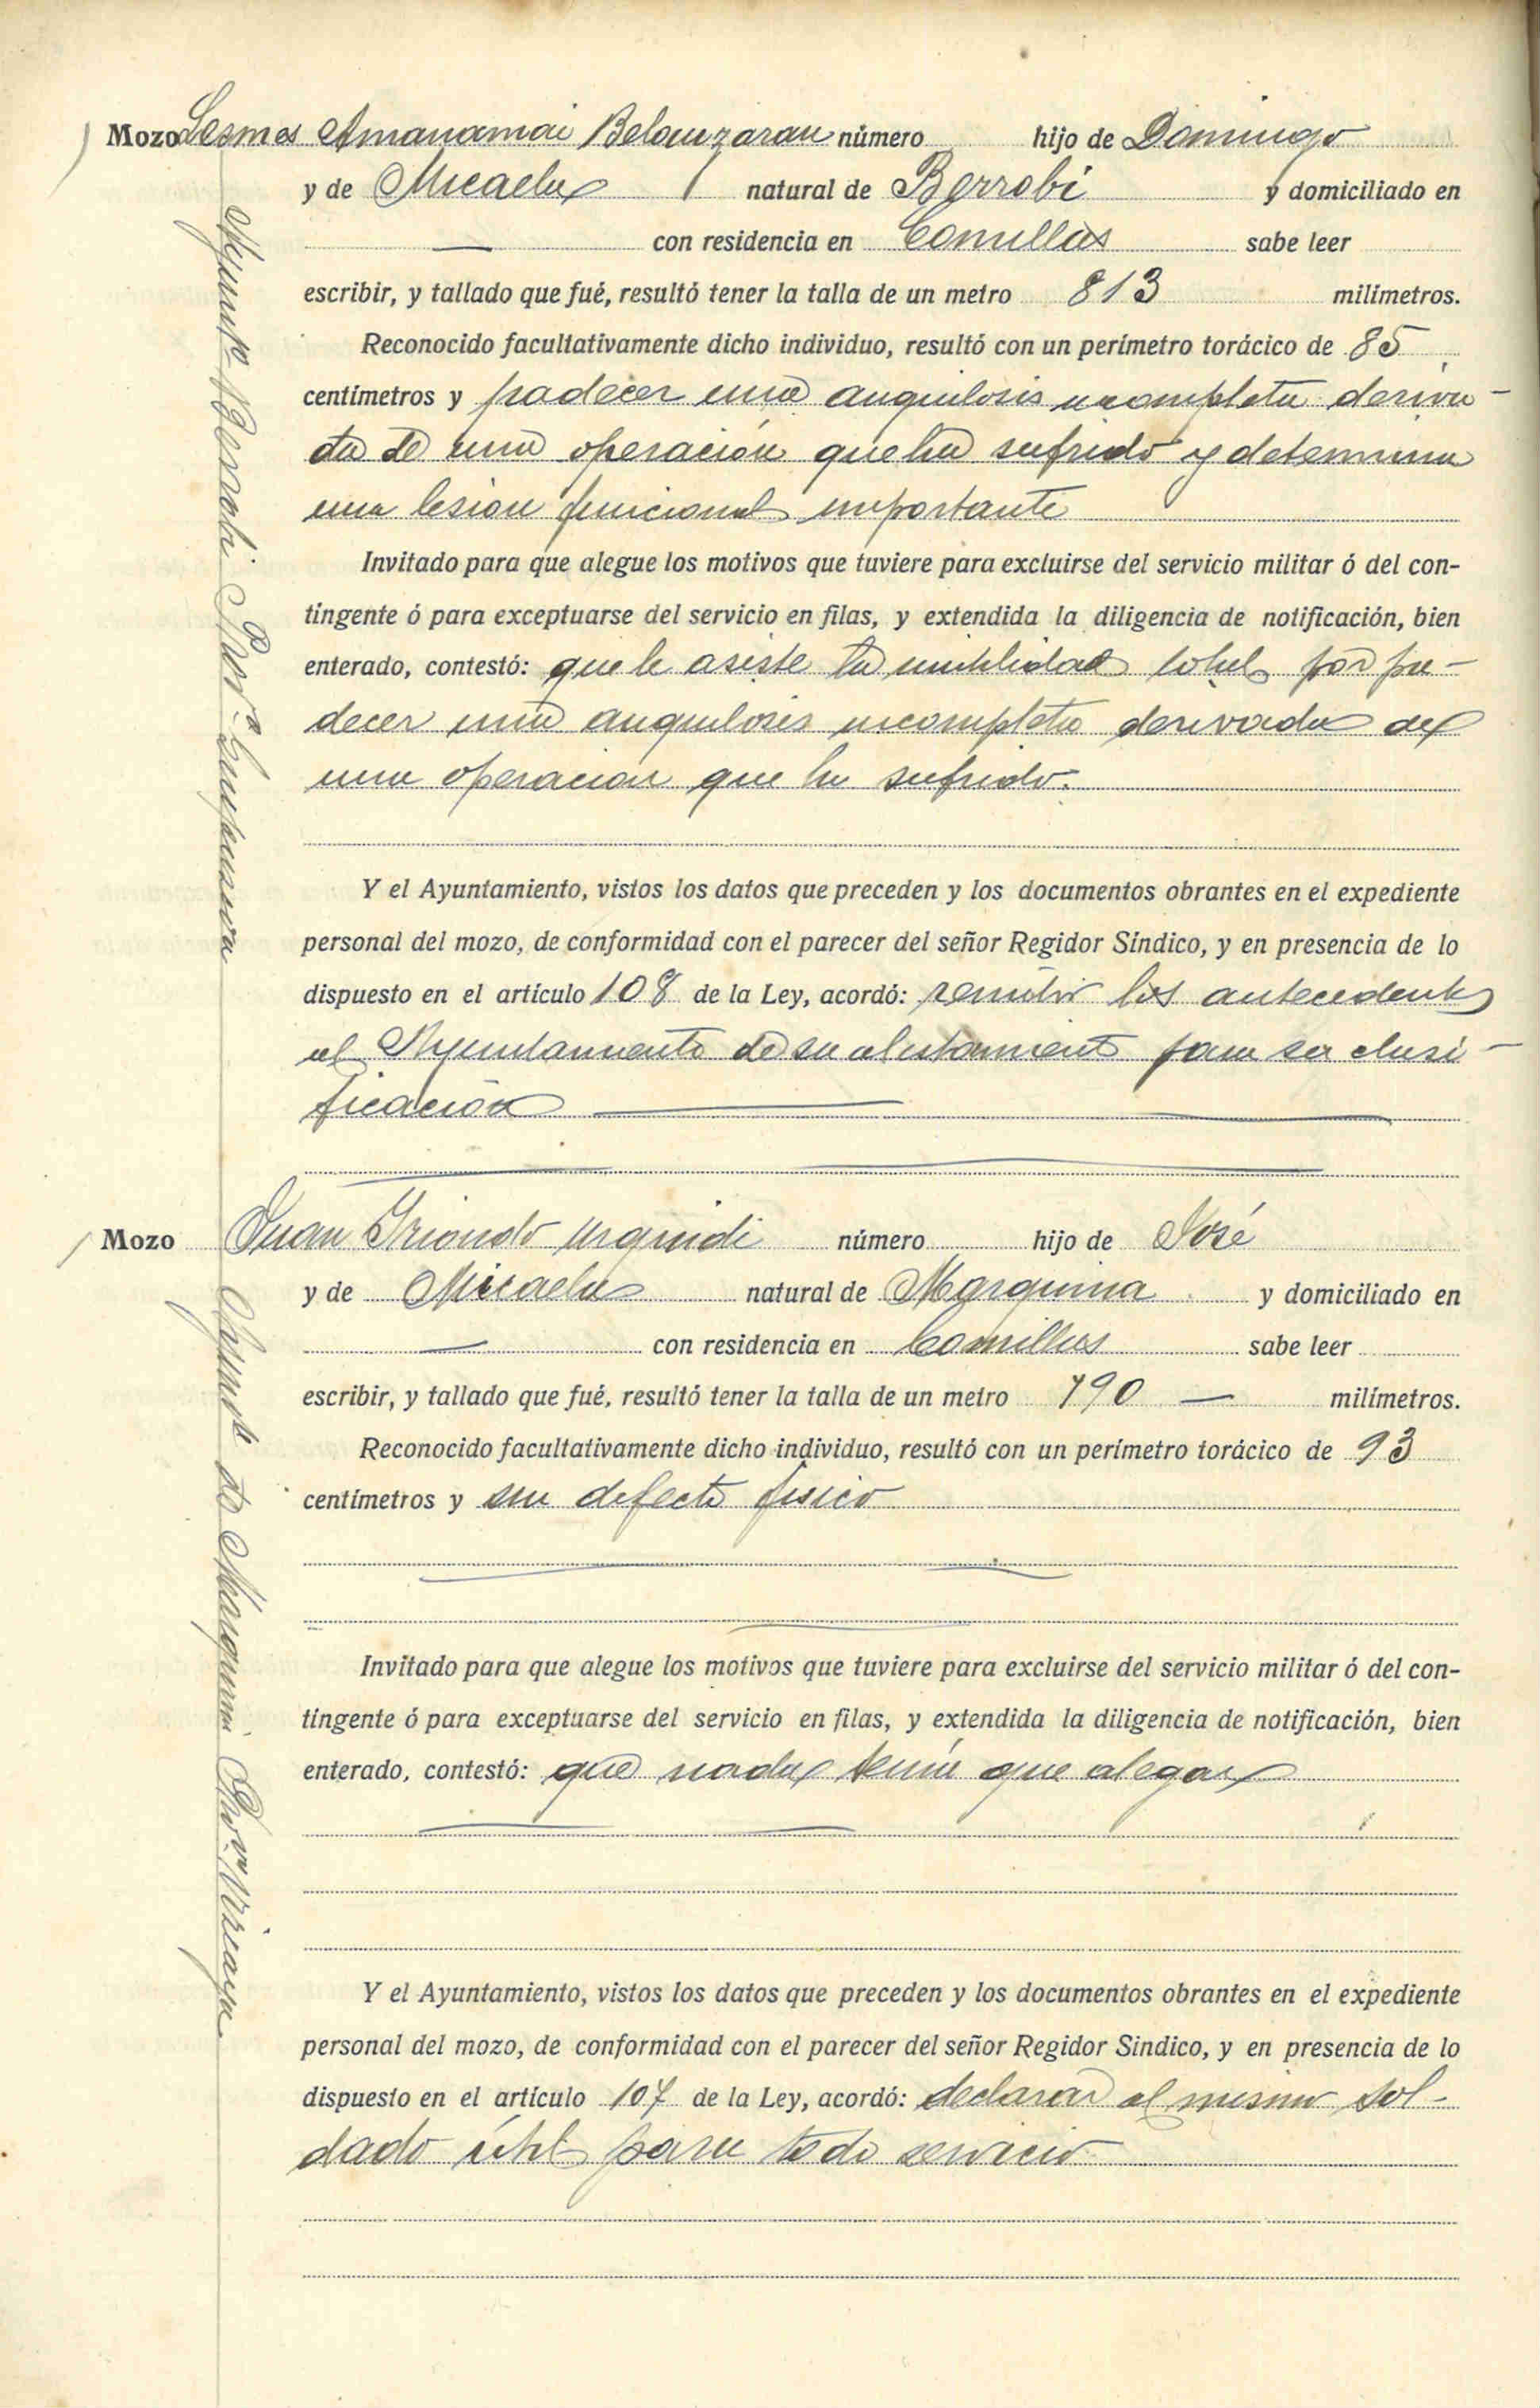 Mozo Lesmes Amanamai Belaunzaran número hijo de Domingo
y de Micaela natural de Berrobi y domiciliado en
— con residencia en Comillas sabe leer
escribir, y tallado que fué, resultó tener la talla de un metro 813 milímetros.
Reconocido facultativamente dicho individuo, resultó con un perímetro torácico de 85
centímetros y padecer una anquilosis incompleta deriva-
da de una operación que ha sufrido y determina
una lesion funcional importante
Invitado para que alegue los motivos que tuviere para excluirse del servicio militar ó del con-
tingente ó para exceptuarse del servicio en filas, y extendida la diligencia de notificación, bien
enterado, contestó: que le asiste la inutilidad total por pa-
decer una anquilosis incompleta derivada de
una operacion que ha sufrido.
Y el Ayuntamiento, vistos los datos que preceden y los documentos obrantes en el expediente
personal del mozo, de conformidad con el parecer del señor Regidor Síndico, y en presencia de lo
dispuesto en el artículo 108 de la Ley, acordó: remitir los antecedentes
al Ayuntamiento de su alistamiento para su clasi-
ficación
Ayunto Berrobi Prova Guipuzcoa
Mozo Juan Iriondo Urquidi número hijo de José
y de Micaela natural de Marquina y domiciliado en
— con residencia en Comillas sabe leer
escribir, y tallado que fué, resultó tener la talla de un metro 790 — milímetros.
Reconocido facultativamente dicho individuo, resultó con un perímetro torácico de 93
centímetros y sin defecto fisico
Invitado para que alegue los motivos que tuviere para excluirse del servicio militar ó del con-
tingente ó para exceptuarse del servicio en filas, y extendida la diligencia de notificación, bien
enterado, contestó: que nada tenia que alegar
Y el Ayuntamiento, vistos los datos que preceden y los documentos obrantes en el expediente
personal del mozo, de conformidad con el parecer del señor Regidor Sindico, y en presencia de lo
dispuesto en el artículo 107 de la Ley, acordó: declarar al mismo sol-
dado útil para todo servicio
Ayunto de Marquina Prova Vizcaya